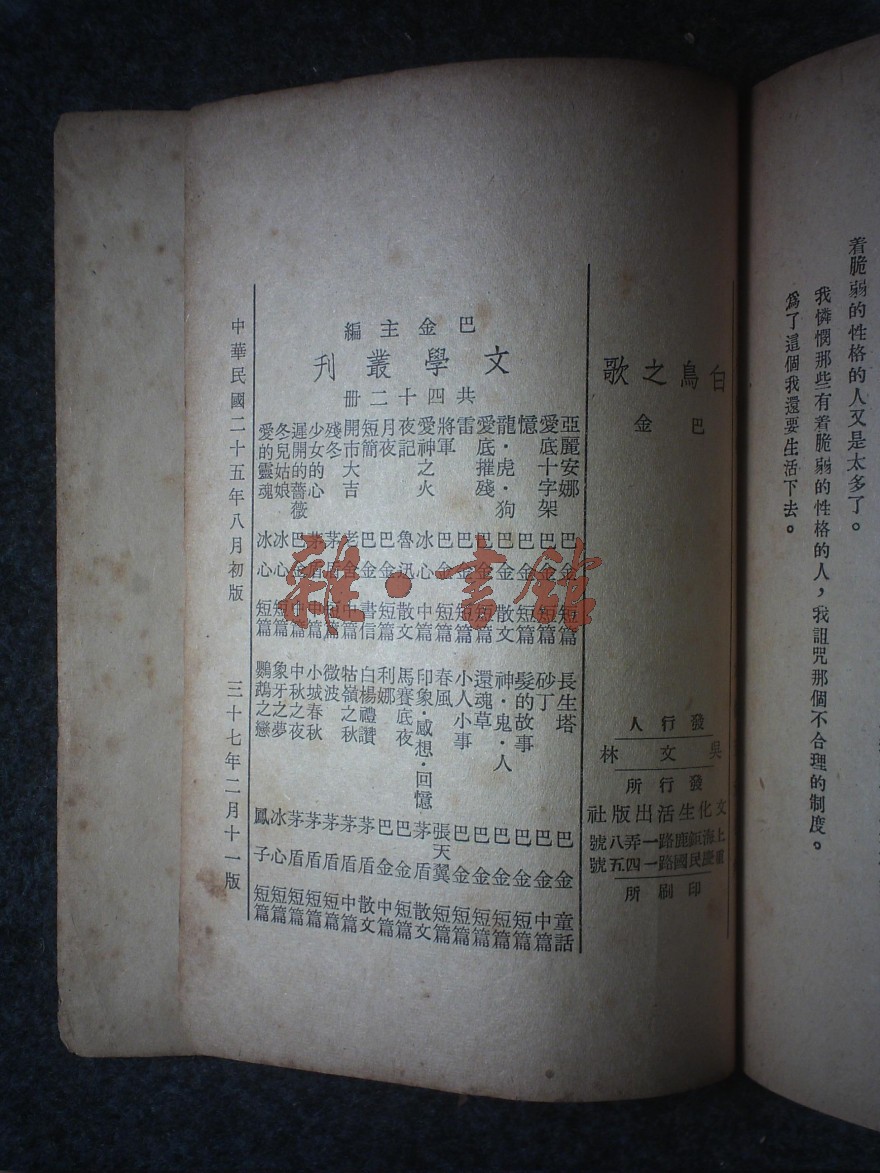 着脆弱的性格的人又是太多了。
我憐憫那些有着脆弱的性格的人，我詛咒那個不合理的制度。
爲了這個我還要生活下去。
白鳥之歌
巴金
發行人
吳文林
發行所
文化生活出版社
上海鉅鹿路一弄八號
重慶民國路一四五號
印刷所
巴金主編
文學叢刊
共四十二册
亞麗安娜 巴金 短篇 長生塔 巴金 童話
愛底十字架 巴金 短篇 砂丁 巴金 中篇
憶 巴金 短篇 髮的故事 巴金 短篇
龍·虎·狗 巴金 散文 神·鬼·人 巴金 短篇
愛底摧殘 巴金 短篇 還魂草 巴金 短篇
雷 巴金 短篇 小人小事 巴金 短篇
將軍 巴金 短篇 春風 張天翼 短篇
愛神之火 冰心 中篇 印象·感想·回憶 茅盾 散文
夜記 魯迅 散文 馬賽底夜 巴金 短篇
月夜 巴金 短篇 利娜 巴金 中篇
短簡 巴金 書信 白楊禮讚 茅盾 散文
開市大吉 老舍 中篇 牯嶺之秋 茅盾 中篇
殘冬 茅盾 短篇 微波 茅盾 短篇
少女的心 茅盾 中篇 小城春秋 茅盾 短篇
遲開的薔薇 巴金 中篇 中秋之夜 茅盾 短篇
冬兒姑娘 冰心 短篇 象牙之夢 冰心 短篇
愛的靈魂 冰心 短篇 鸚鵡之戀 鳳子 短篇
中華民國二十五年八月初版 三十七年二月十一版
雜·書館